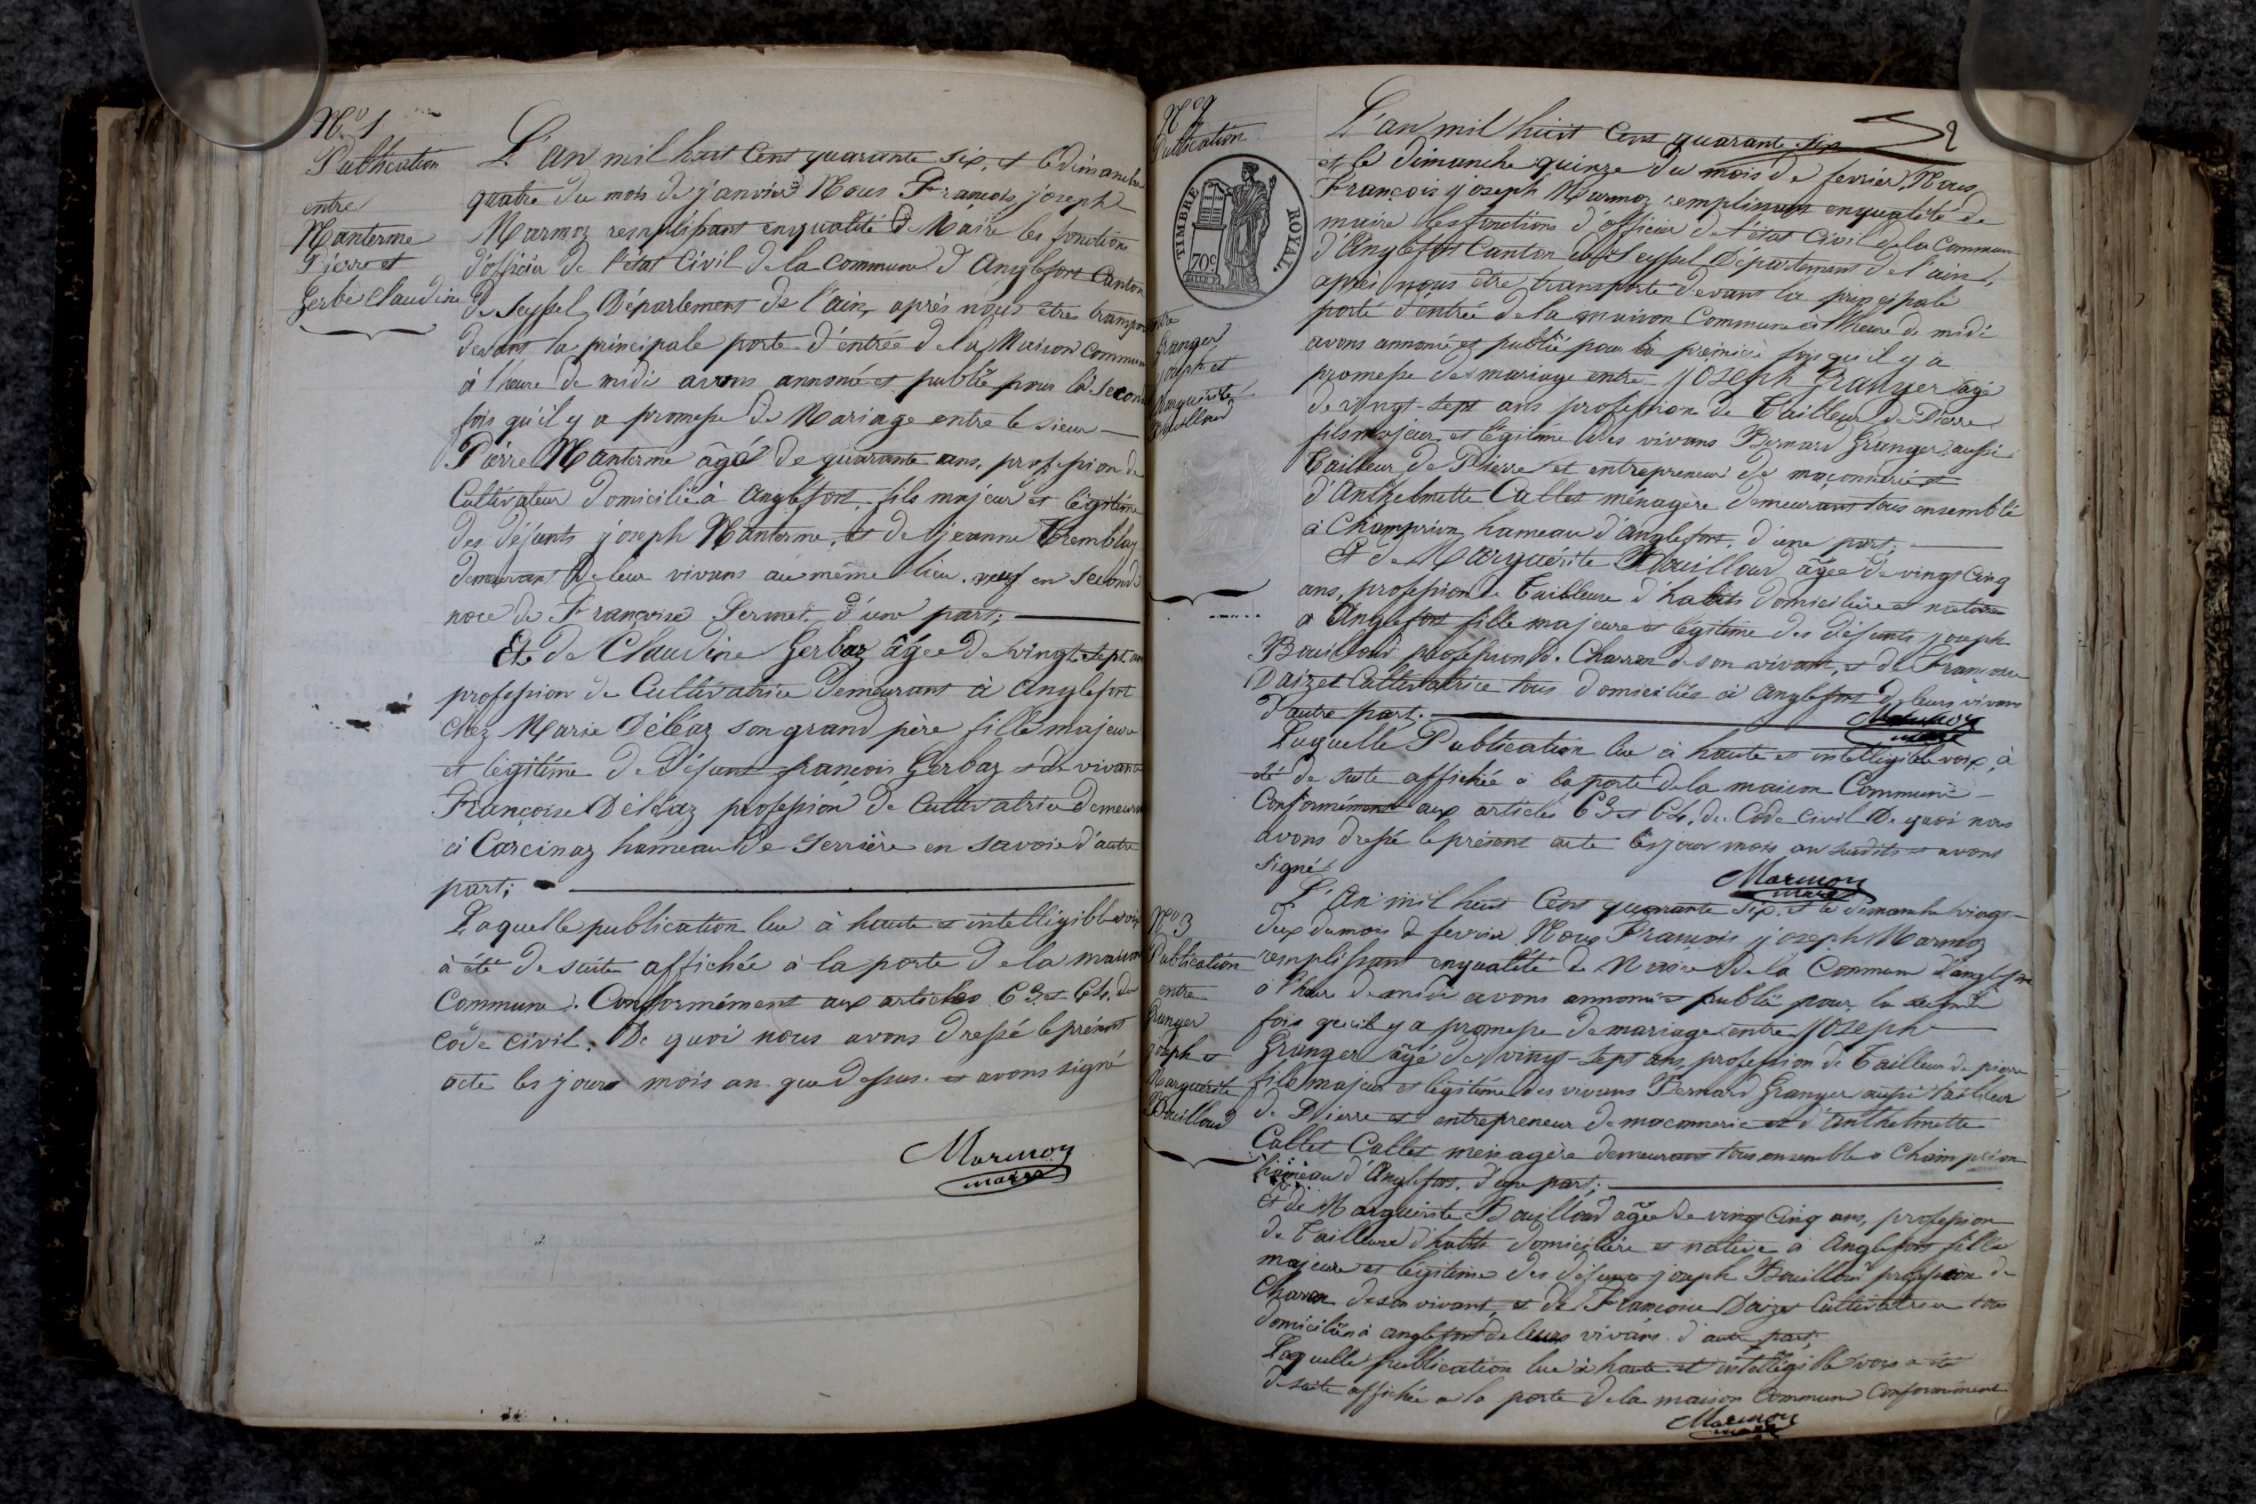 N.º 1
Publication
entre
Manterme
Pierre et
Gerbe Claudine
L'an mil huit Cent quarante six, et le dimanche
quatre du mois de janvier Nous François joseph
Marmoz remplissant enqualité de Maire les fonctions
d'officier de l'état Civil de la Commune d'Anglefort Canton
de Seyssel, Département de l'ain, après nous être transporté
devant la principale porte d'entrée de la Maison Commune
à l'heure de midi avons annoncé et publié pour la Seconde
fois qu'il y a promesse de Mariage entre le sieur
Pierre Manterme âgé de quarante ans, profession de
Cultivateur domicilié à anglefort, fils majeur et légitime
des défunts joseph Manterme, et de jeanne Tremblay
demeurant de leur vivans au même lieu, veuf en seconde
noce de Françoise Sermet, d'une part;
Et de Claudine Gerbaz âgée de vingt sept ans
profession de Cultivatrice demeurant à anglefort
chez Marie Déléaz son grand père fille majeure
et légitime de Défunt françois Gerbaz et de vivante
Françoise Déléaz profession de Cultivatrice demeurant
à Carcinaz hameau de Serrière en Savoie d'autre
part;
Laquelle publication lue à haute et intelligible voix
à été de suite affichée à la porte de la maison
Commune. Conformément aux articles 63 et 64, du
Code civil. De quoi nous avons dressé le présent
acte les jours mois an que dessus. et avons signé
Marmoz
maire
Nº 2
Publication
TIMBRE ROYAL.
70c
entre
Granger
joseph et
Marguérite
Bouilloud
2
L'an mil huit Cent quarante six
et le dimanche quinze du mois de fevrier, Nous
François joseph Marmoz remplissant enqualité de
maire les fonctions d'officier de l'état Civil de la Commune
d'Anglefort Canton de Seyssel Département de l'ain,
après nous être transporté devant la principale
porte d'entrée de la maison Commune à l'heure de midi
avons annoncé et publié pour la première fois qu'il y a
promesse de mariage entre joseph Granger âgé
de vingt-sept ans profession de Tailleur de Pierre
fils majeur et légitime des vivans Bernard Granger aussi
Tailleur de Pierre et entrepreneur de maçonnerie et
d'Anthelmette Callet ménagère demeurant tous ensemble
à Champrion hameau d'anglefort, d'une part;
Et de Marguérite Bouilloud âgée de vingt Cinq
ans, profession de Tailleuse d'habits domicilière et native
à Anglefort fille majeure et légitime des défunts joseph
Bouilloud profession de Charron de son vivant, et de Françoise
Daizet Cultivatrice tous domiciliés à anglefort de leurs vivans
d'autre part.
Marmoz
maire
Laquelle Publication lue à haute et intelligible voix, à
été de suite affichée à la porte de la maison Commune
Conformément aux articles 63 et 64, du Code Civil De quoi nous
avons dressé le présent acte les jour mois an susdits et avons
signé.
Marmoz
maire
Nº 3
Publication
entre
Granger
joseph et
Marguérite
Bouilloud
L'An mil huit Cent quarante six et le dimanche vingt-
deux du mois de fevrier Nous François joseph Marmoz
remplissant enqualité de Maire de la Commune d'anglefort
à l'heure de midi avons annoncé et publié pour la seconde
fois qu'il y a promesse de mariage entre joseph
Granger âgé de vingt-sept ans, profession de Tailleur de pierre
fils majeur et légitime des vivans Bernard Granger aussi tailleur
de Pierre et entrepreneur de maçonnerie et d'Anthelmette
Callet Callet ménagère demeurant tous ensemble à Champrion
hameau d'Anglefort, d'une part;
Et de Marguerite Bouilloud âgée de vingt Cinq ans, profession
de Tailleuse d'habits domicilière et native à Anglefort fille
majeure et légitime des défunts joseph Bouilloud profession de
Charron de son vivant, et de Françoise Daizet Cultivatrice tous
domiciliés à anglefort de leurs vivans d'autre part;
Laquelle publication lue à haute et intelligible voix à été
de suite affichée à la porte de la maison Commune Conformément
Marmoz
maire